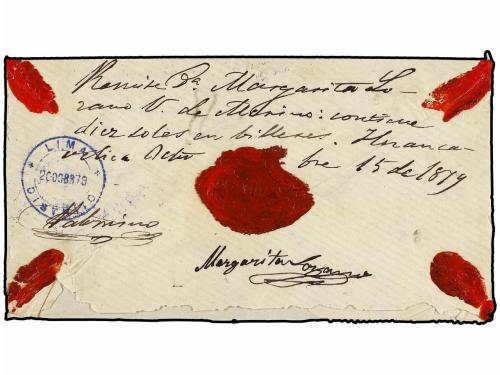 Remite Dª Margarita Lo-
zano V. de Merino: contiene
diez soles en billetes. Huanca-
velica Octu bre 15 de 1879
LIMA
20 OCBR 79
Margarita Lozano